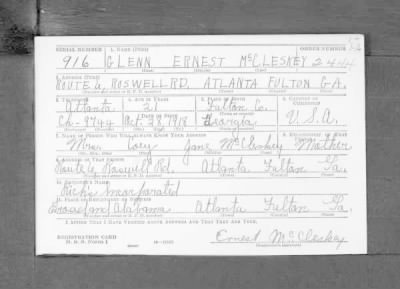 SERIAL NUMBER 1. NAME (Print) ORDER NUMBER
916 GLENN ERNEST McCLESKEY 2444
(First) (Middle) (Last)
2. ADDRESS (Print)
ROUTE 6, ROSWELL RD. ATLANTA FULTON GA.
3. TELEPHONE 4. AGE IN YEARS 5. PLACE OF BIRTH 6. COUNTRY OF CITIZENSHIP
Atlanta 21 Fulton Co.
DATE OF BIRTH
Ch-9744 Oct. 23, 1918 Georgia U.S.A.
7. NAME OF PERSON WHO WILL ALWAYS KNOW YOUR ADDRESS 8. RELATIONSHIP OF THAT PERSON
Mrs. Jane McCleskey Mother
9. ADDRESS OF THAT PERSON
Route 6, Roswell Rd. Atlanta Fulton Ga.
10. EMPLOYER'S NAME
Rich's incorporated
11. PLACE OF EMPLOYMENT OR BUSINESS
Broad and Alabama Atlanta Fulton Ga.
I AFFIRM THAT I HAVE VERIFIED ABOVE ANSWERS AND THAT THEY ARE TRUE.
REGISTRATION CARD
D. S. S. Form 1
Ernest McCleskey